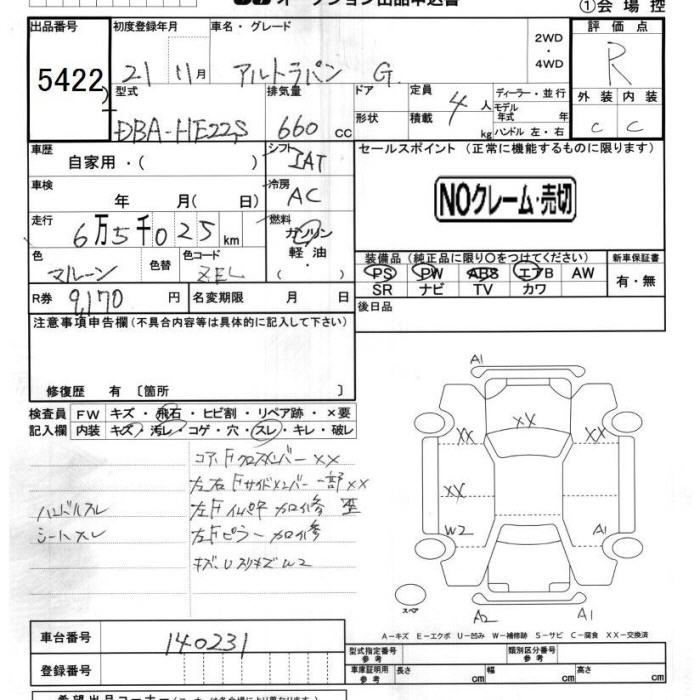 オークション出品申込書
①会場控
出品番号 初度登録年月 車名・グレード 評価点
5422 21 11月 アルトラパン G. 2WD・4WD R
型式 排気量 ドア 定員 ディーラー・並行 外装 内装
DBA-HE22S 660 cc 形状 積載 4人 kg モデル年式 年 ハンドル 左・右 C C
車歴 シフト セールスポイント (正常に機能するものに限ります)
自家用・( ) IAT
車検 冷房
年 月( 日) AC NOクレーム・売切
走行 燃料
6万5千025km ガソリン
色 色替 色コード 軽油 装備品(純正品に限り○をつけてください) 新車保証書
マルーン ZEL ・( ) PS PW ABS エアB AW 有・無
R券 9,170 円 名変期限 月 日 SR ナビ TV カワ
注意事項申告欄(不具合内容等は具体的に記入して下さい) 後日品
修復歴 有 〔箇所 〕
検査員 FW キズ・飛石・ヒビ割・リペア跡・×要
記入欄 内装 キズ・汚レ・コゲ・穴・スレ・キレ・破レ
コアF クロスメンバー XX
左右Fサイドメンバー一部XX
ハンドルスレ 左Fインパネ カロ修 歪
シートスレ 左Fピラー カロ修
キズ、U スリキズ W2
A1
XX
XX XX
XX
W2 A1
スペア
A2 A1
A-キズ E-エクボ U-凹み W-補修跡 S-サビ C-腐食 XX-交換済
車台番号 140231 型式指定番号 参考 類別区分番号 参考
登録番号 車庫証明用 参考 長さ cm 幅 cm 高さ cm
希望出品コーナー